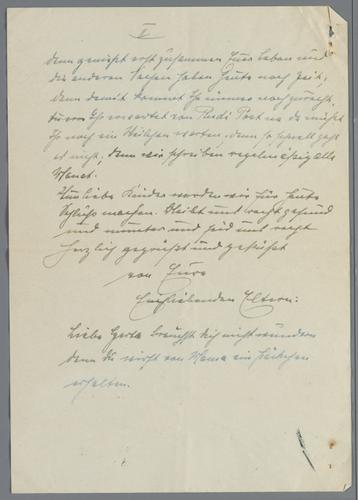 II
denn genießt erst zusammen Euer Leben und
die anderen Sachen haben heute noch Zeit,
denn damit kommt Ihr immer noch zurecht,
Ihr erwartet von Rudi Post na da müßt
Ihr noch ein Weilchen warten, denn so schnell geht
es nicht, denn wir schreiben regelmäßig alle
Monat.
Nun liebe Kinder werden wir für heute
Schluß machen. Bleibt uns recht gesund
und munter und seid uns recht
herzlich gegrüßt und geküßt
von Eure
Euchliebenden Eltern.
Liebe Gerda brauchst dich nicht wundern
denn du wirst von Mama ein Päckchen
erhalten.